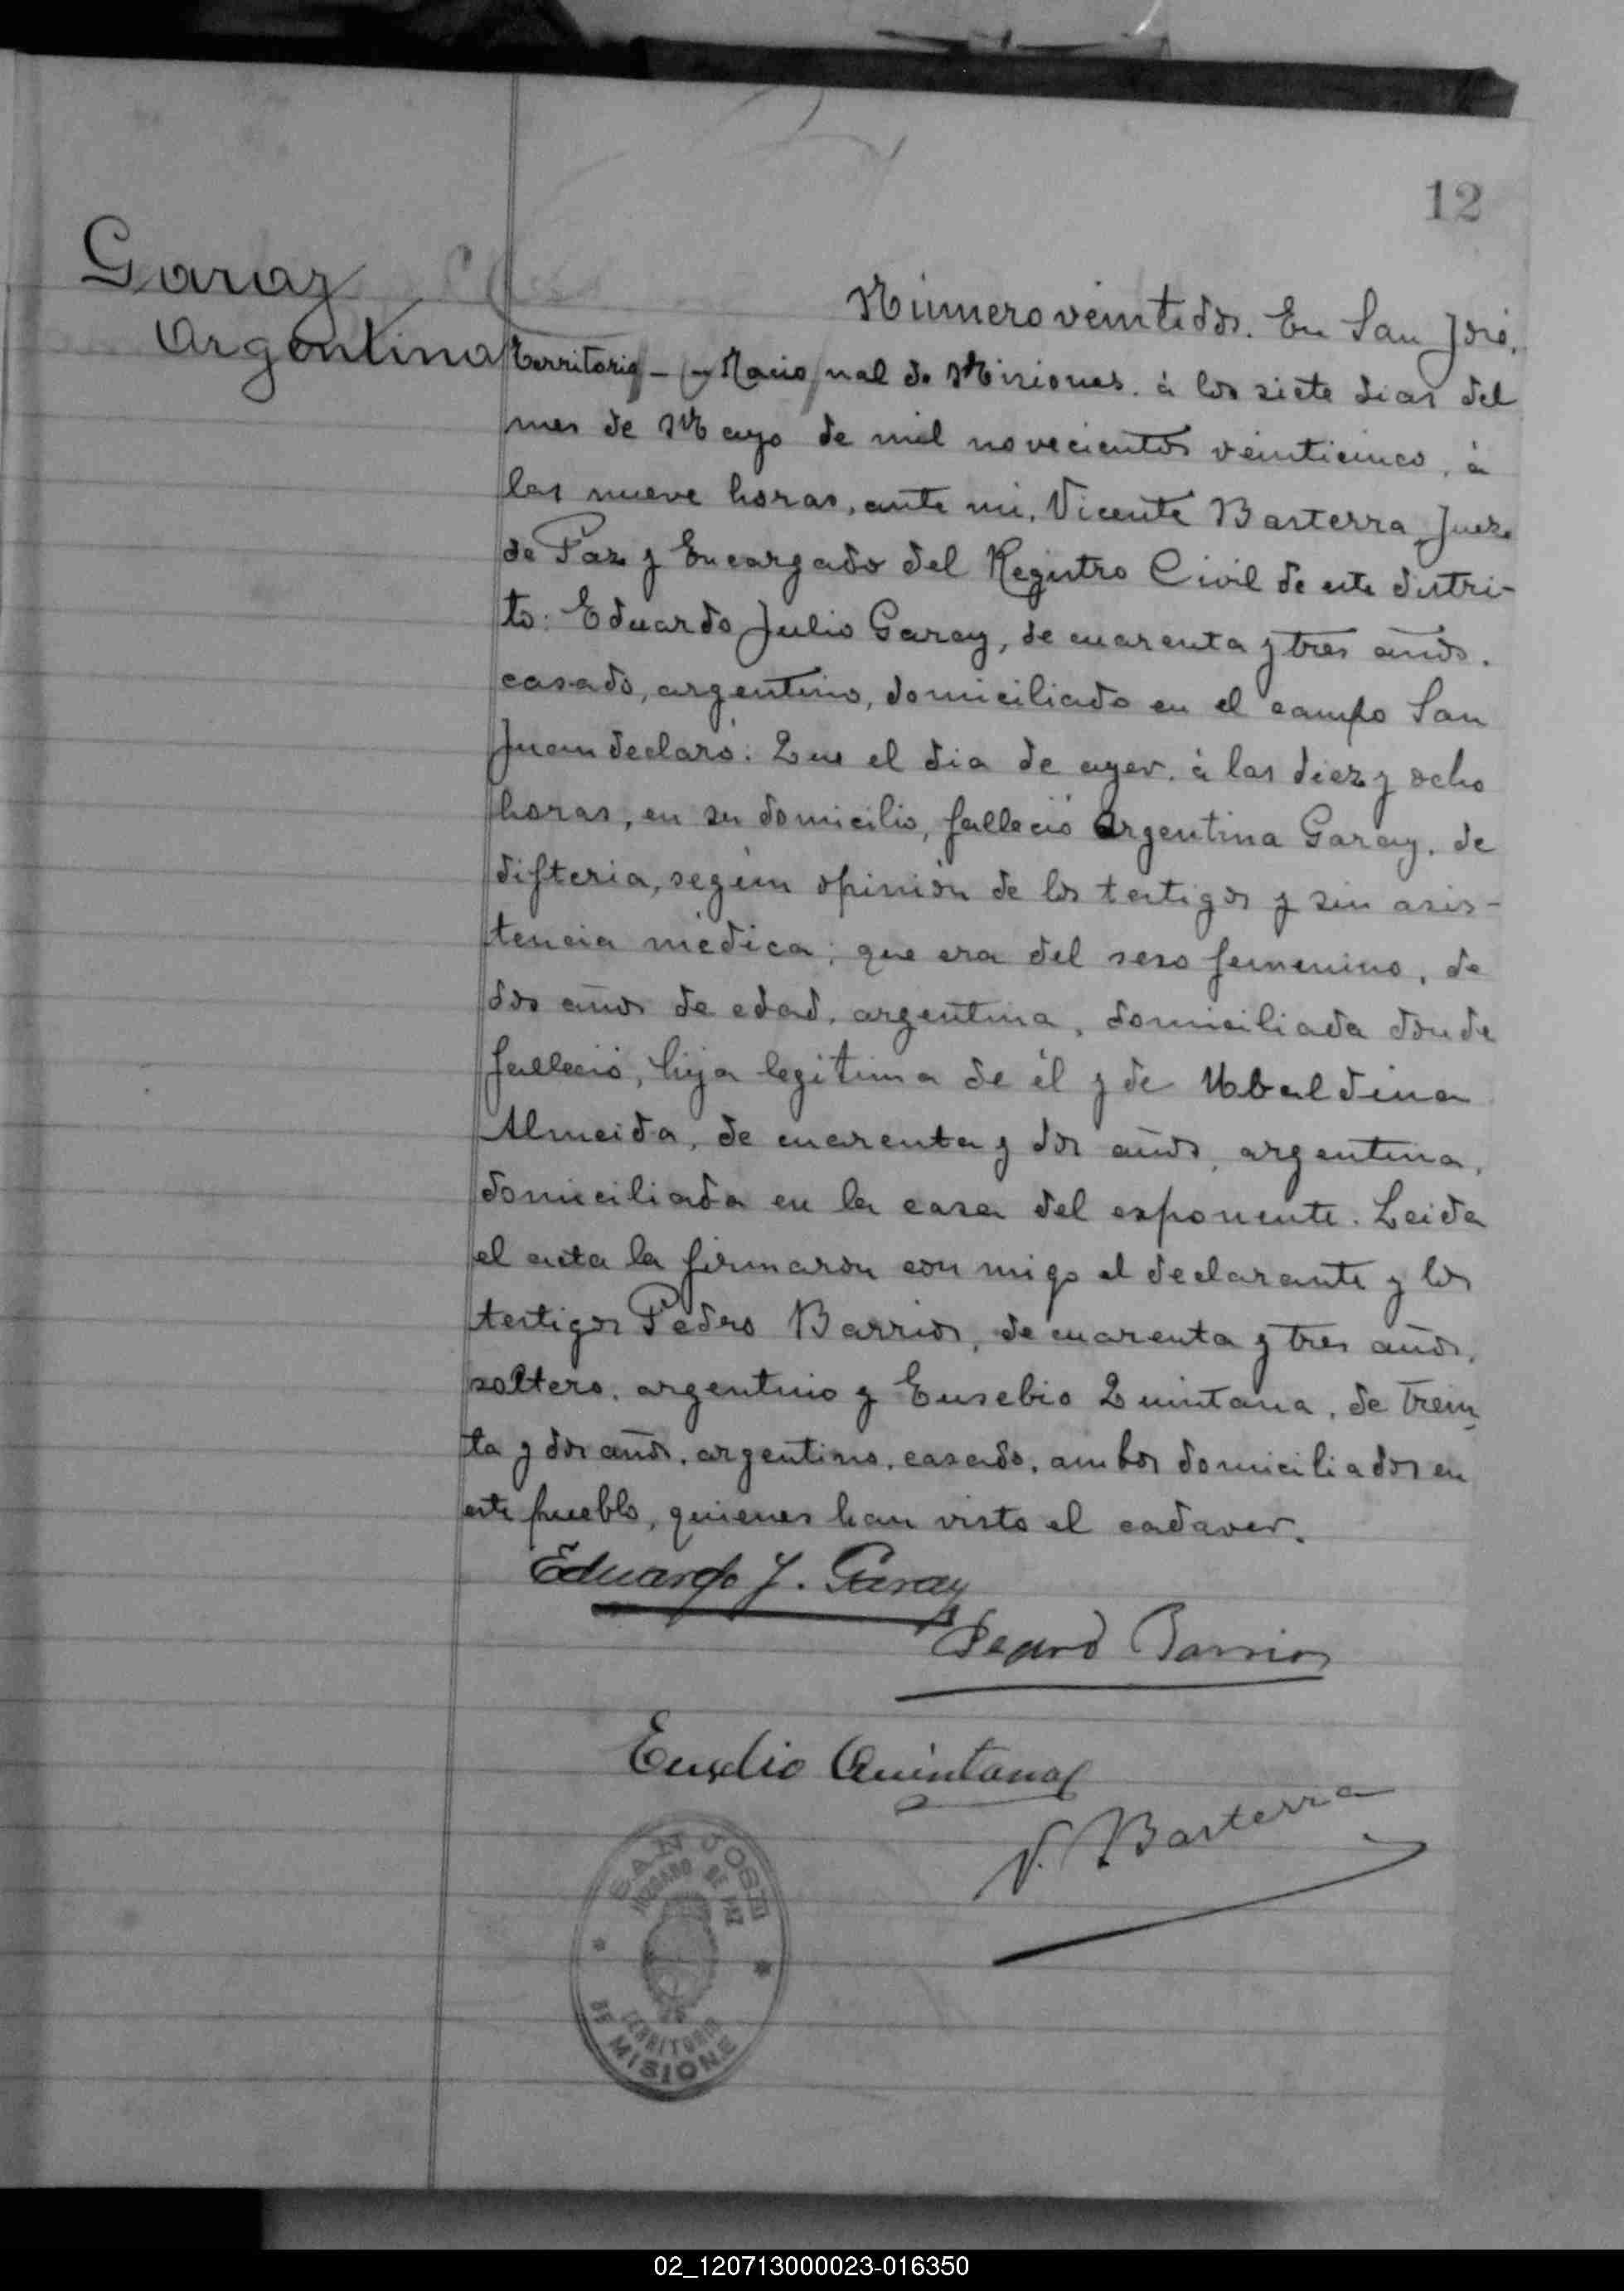 12
Garay
Argentina
Número veintidos. En San José,
territorio - Nacional de Misiones. á los siete dias del
mes de Mayo de mil novecientos veinticinco, á
las nueve horas, ante mi, Vicente Basterra, Juez
de Paz y Encargado del Registro Civil de este distri-
to: Eduardo Julio Garay, de cuarenta y tres años,
casado, argentino, domiciliado en el campo San
Juan declaró: Que el dia de ayer, á las diez y ocho
horas, en su domicilio, falleció Argentina Garay, de
difteria, según opinión de los testigos y sin asis-
tencia médica; que era del sexo femenino, de
dos años de edad, argentina, domiciliada donde
falleció, hija legitima de él y de Ubaldina
Almeida, de cuarenta y dos años, argentina,
domiciliada en la casa del exponente. Leida
el acta la firmaron conmigo el declarante y los
testigos Pedro Barrios, de cuarenta y tres años,
soltero, argentino y Eusebio Quintana, de trein
ta y dos años, argentino, casado, ambos domiciliados en
este pueblo, quienes han visto el cadaver.
Eduardo J. Garay
Pedro Barrios
Eusebio Quintana
V. Basterra
SAN JOSE
JUZGADO DE PAZ
TERRITORIO
DE MISIONE
02_120713000023-016350